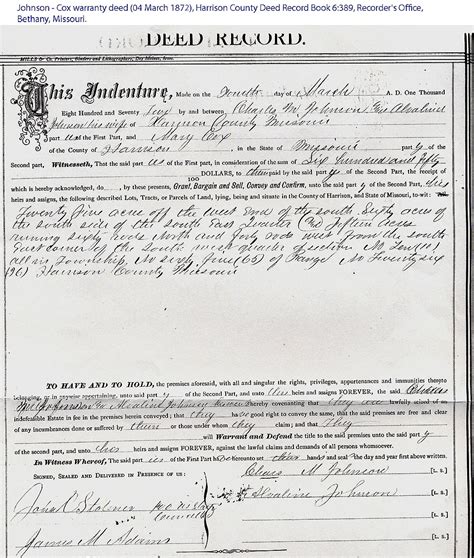 Johnson - Cox warranty deed (04 March 1872), Harrison County Deed Record Book 6:389, Recorder's Office,
Bethany, Missouri.
DEED RECORD.
This Indenture, Made on the Fourth day of March A. D. One Thousand
Eight Hundred and Seventy Two by and between Charles M Johnson
Johnson his wife of Harrison County Missouri
part of the First Part, and Mary Cox
County of Harrison, in the State of Missouri part y of the
Second part, Witnesseth, That the said part of the First Part, in consideration of the sum of Six hundred and fifty
100
DOLLARS, to them paid by the said part y of the Second Part, the receipt of
which is hereby acknowledged, do, by these presents, Grant, Bargain and Sell, Convey and Confirm, unto the said part y of the Second Part, his
heirs and assigns, the following described Lots, Tracts, or Parcels of Land, lying, being and situate in the County of Harrison, and State of Missouri, to wit:
Twenty five acres off the west end of the south Sixty acres of
the south side of the South East quarter Fifteen acres
running sixty rods North and forty rods west from the south
East corner of the South west quarter of section No Ten (10)
all in Township No sixty five (65) of Range No Twenty six
(26) Harrison County Missouri
TO HAVE AND TO HOLD, the premises aforesaid, with all and singular the rights, privileges, appurtenances and immunities thereto
belonging, or in anywise appertaining, unto said part y of the Second Part, and unto his heirs and assigns FOREVER, the said Charles
M Johnson Johnson hereby covenanting that they are lawfully seized of an
indefeasible Estate in fee in the premises herein conveyed; that they have good right to convey the same, that the said premises are free and clear
of any incumbrances done or suffered by them or those under whom they claim; and that they
will Warrant and Defend the title to the said premises unto the said part y
of the Second Part, and unto his heirs and assigns FOREVER, against the lawful claims and demands of all persons whomsoever.
In Witness Whereof, The said part of the First Part have hereunto set their hand and seal the day and year first above written.
SIGNED, SEALED AND DELIVERED IN PRESENCE OF US:
Chas M Johnson [L. S.]
Johnson [L. S.]
[L. S.]
James M Adams [L. S.]